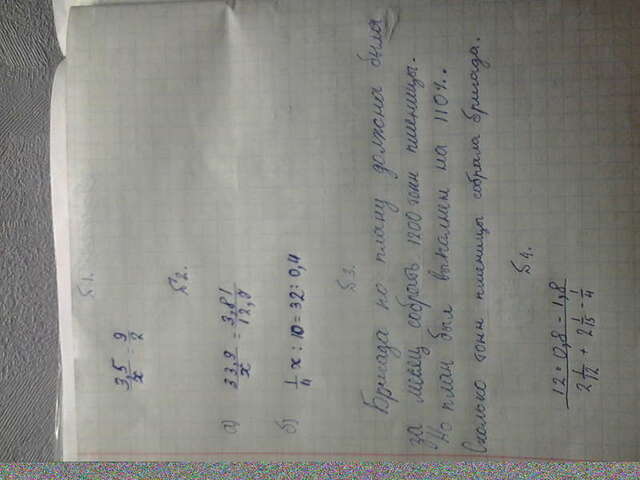 §1.
3,5/x = 9/2
§2.
а) 33,9/x = 3,81/12,7
б) 1/4 x : 10 = 32 : 0,4
§3.
Бригада по плану должна была
за месяц собрать 1200 тонн пшеницы.
Но план был выполнен на 110%.
Сколько тонн пшеницы собрала бригада.
§4.
12 * 0,8 - 1,8
2 1/12 + 2 1/15 - 1/4